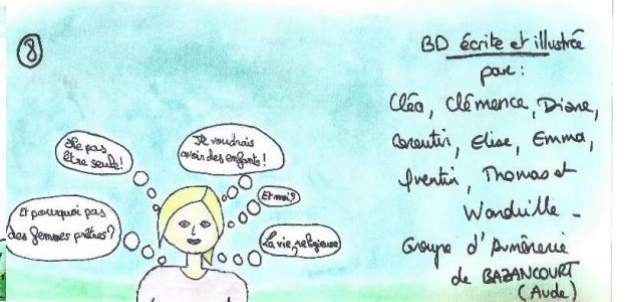 8
Ne pas
être seule!
Je voudrais
avoir des enfants!
Et moi?
Et pourquoi pas
des femmes prêtres?
La vie religieuse
BD écrite et illustrée
par:
Cléo, Clémence, Diane,
Corentin, Elise, Emma,
Quentin, Thomas et
Wandrille -
Groupe d'Aumônerie
de BAZANCOURT
(Aude)